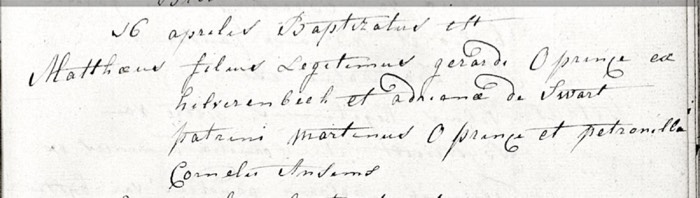 16 aprilis Baptizatus est
Matthæus filius Legitimus gerardi Oprinçe ex
hilverenbeeh et adrianæ de Swart
patrini martinus Oprinçe et petronilla
Cornelii Ansems